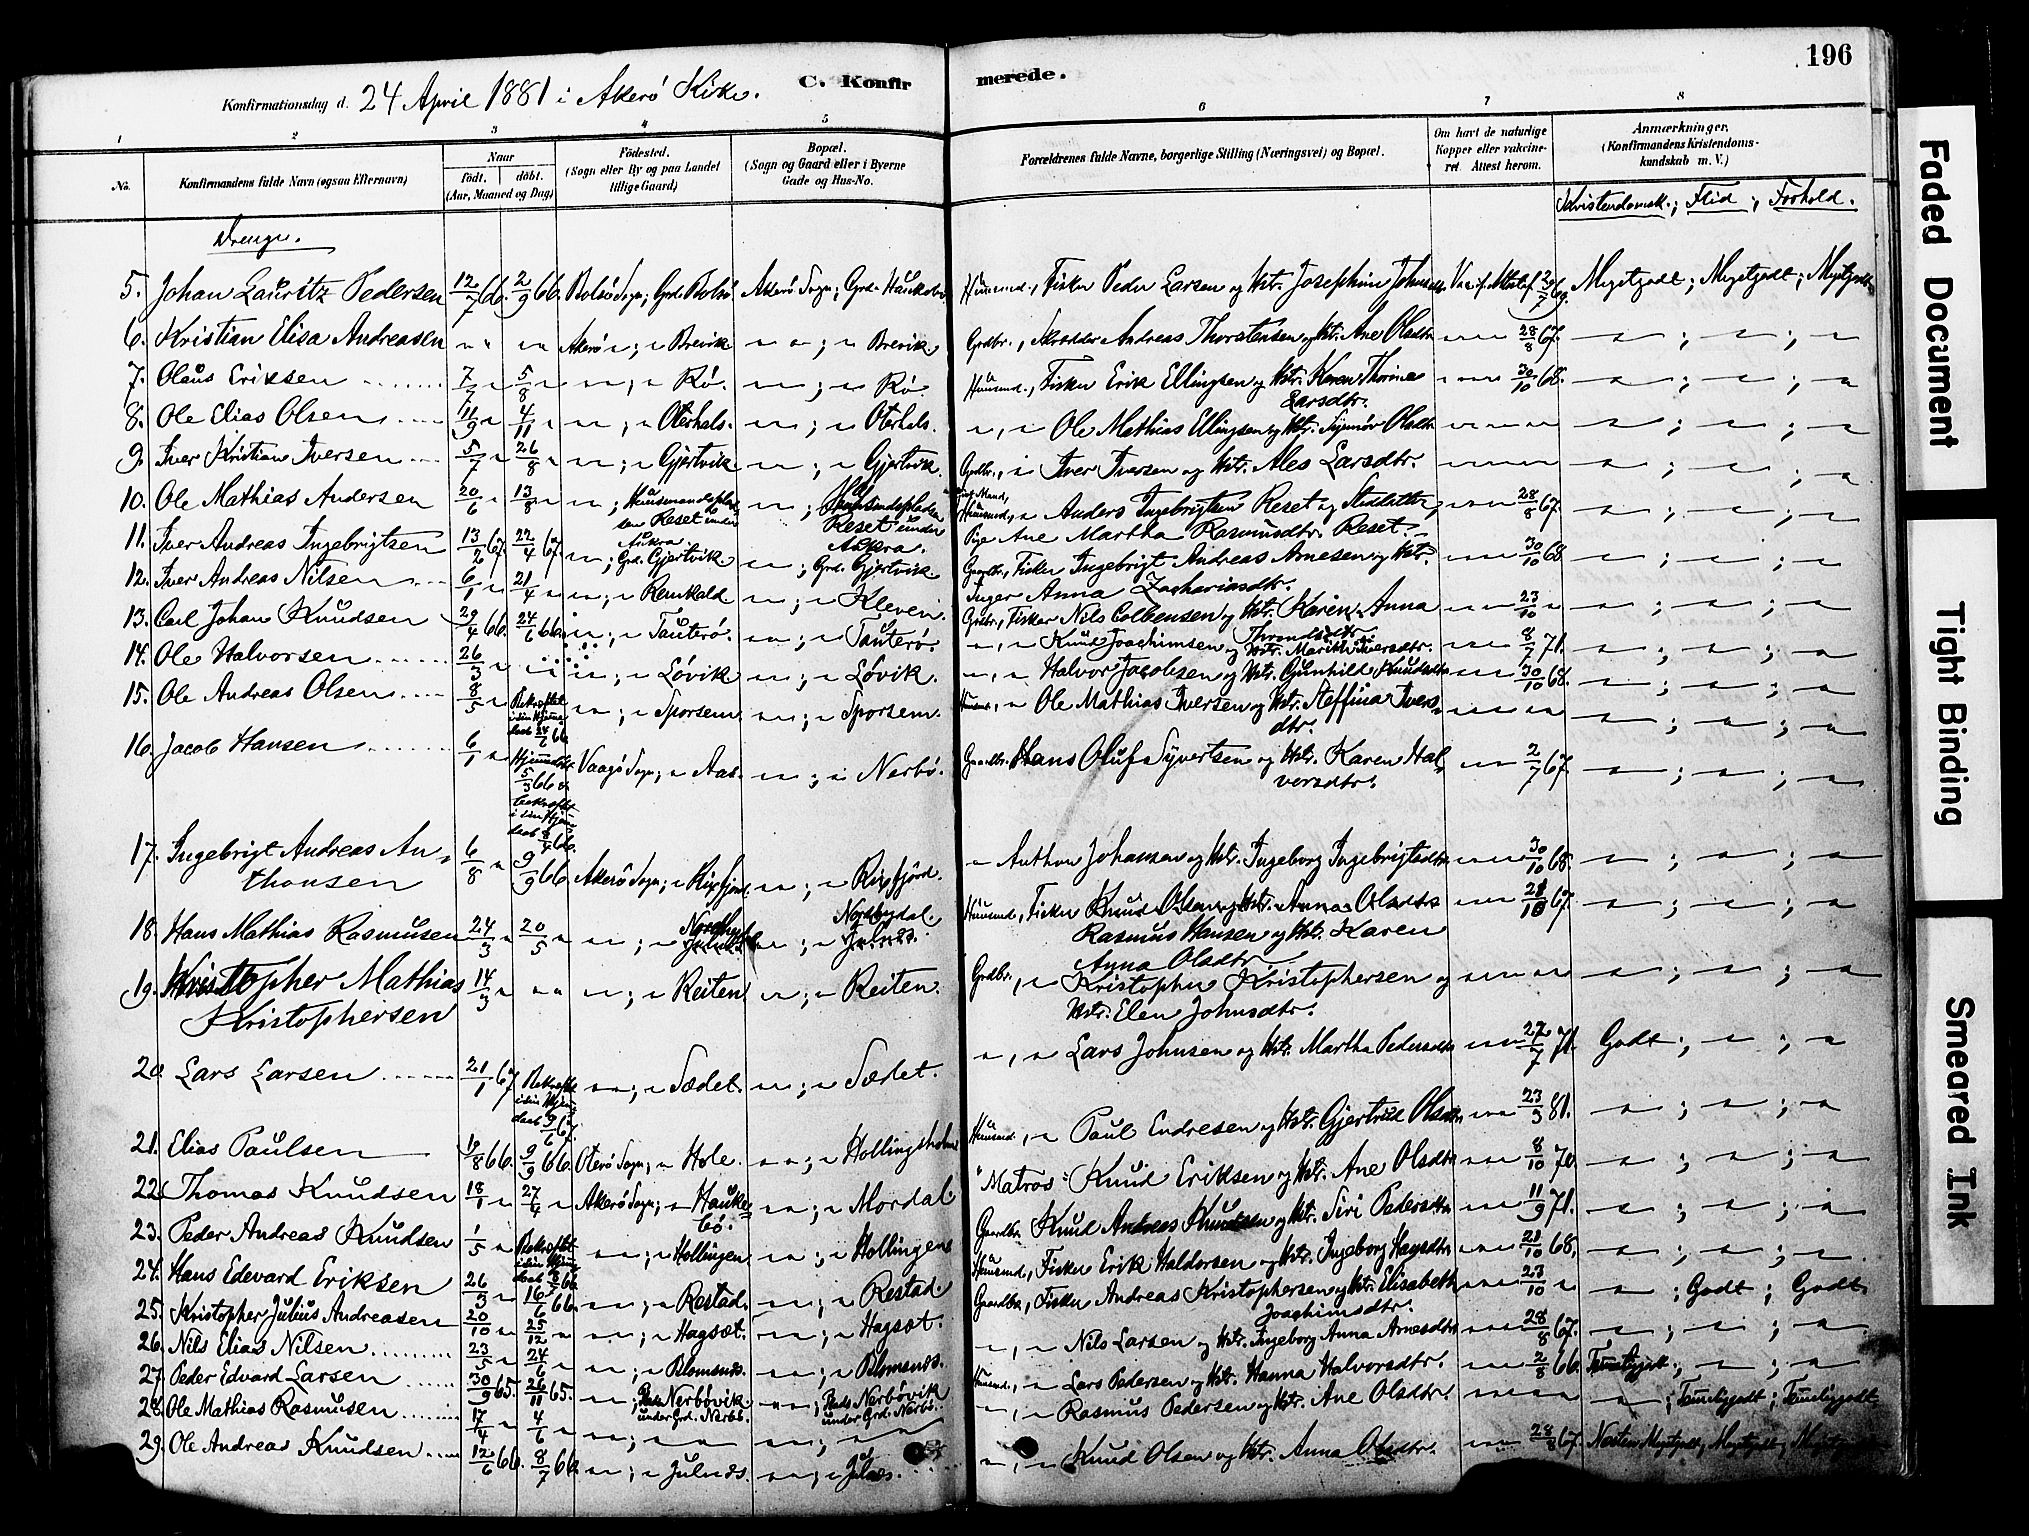 196
C. Konfirmerede.
Konfirmationsdag d. 24 April 1881 i Akerö Kirke.
1 2 3 4 5 6 7 8
No. Konfirmandens fulde Navn (ogsaa Efternavn)
Naar født. døbt. (Aar, Maaned og Dag)
Fødested. (Sogn eller By og paa Landet tillige Gaard)
Bopæl. (Sogn og Gaard eller i Byerne Gade og Hus-No.
Forældrenes fulde Navne, borgerlige Stilling (Næringsvei) og Bopæl.
Om havt de naturlige Kopper eller vakcineret Attest herom.
Anmærkninger. (Konfirmandens Kristendomskundskab m. V.)
Kristendomsk.; Flid; Forhold.
Drenge.
5. Johan Lauritz Pedersen 12/7 66. 2/9 66. Bolsö Sogn; Grd. Bolsö Akerö Sogn; Grd. Haukebö Huusmd., Fisker Peder Larsen og Hstr. Josephine Johnsdtr. Megetgodt; Megetgodt; Megetgodt
6. Kristian Elisa Andreasen " " " " Akerö "; " Brevik " "; " Brevik Grdbr., Skrædder Andreas Thorstensen og Hstr. Ane Olsdtr. " " 28/8 67. " ; " ; "
7. Olaus Eriksen 7/7 " 5/8 " " "; " Rö. " "; " Rö. Huusmd., Fisker Erik Ellingsen og Hstr. Karen Thorine Larsdtr. " " 30/10 68. " ; " ; "
8. Ole Elias Olsen 11/9 " 4/11 " " "; " Oterhals. " "; " Oterhals. ", " Ole Mathias Ellingsen og Hstr. Olsdtr. " " " " ; " ; "
9. Iver Kristian Iversen 5/7 " 26/8 " " "; " Gjertvik " "; " Gjertvik Grdbr., " Iver Iversen og Hstr. Ales Larsdtr. " " " " ; " ; "
10. Ole Mathias Andersen 20/6 " 13/8 " " "; Huusmandspladsen Reset under Aukra " "; Huusmandspladsen Reset under Aukra. Huusmd., " Anders Ingebrigtsen Reset og Pige Ane Martha Rasmusdtr. Reset. " " 28/8 67. " ; " ; "
11. Iver Andreas Ingebrigtsen 13/2 67. 22/4 67. " "; Grd. Gjertvik " "; Grd. Gjertvik Gaardbr., Fisker Ingebrigt Andreas Arnesen og Hstr. Inger Anna Zachariasdtr. " " 30/10 68 " ; " ; "
12. Iver Andreas Nilsen 6/1 " 21/4 " " "; " " "; " Kleven. Grdbr., Fisker Nils Colbensen og Hstr. Karen Anna Throndsdtr. " " 23/10 " " ; " ; "
13. Carl Johan Knudsen 29/4 66. 24/6 66. " "; " Tauterö. " "; " Tauterö. ", " Knud Joachimsen og Hstr. Marith Iversdtr. " " 8/7 71. " ; " ; "
14. Ole Halvorsen 26/3 " " "; " Lövik " "; " Lövik. ", " Halvor Jacobsen og Hstr. Gunhild Knudsdtr. " " 30/10 68. " ; " ; "
15. Ole Andreas Olsen 8/5 " Bekræftet i sin Hjemmedaab 24/6 66 " "; " Sporsem " "; " Sporsem. Huusmd., " Ole Mathias Iversen og Hstr. Steffina Iversdtr. " " " " ; " ; "
16. Jacob Hansen 6/1 " Hjemmedöbt 5/3 66 og bekræftet i sin Hjemmedaab 8/4 66. Vaagö Sogn; " Aas " "; " Nerbö. Gaardbr. Hans Oluf Syvertsen og Hstr. Karen Halvorsdtr. " " 2/7 67. " ; " ; "
17. Ingebrigt Andreas Anthonsen 6/8 " 9/9 66. Akerö Sogn; " Rixfjord " "; " Rixfjörd. " Anthon Johansen og Hstr. Ingeborg Ingebrigtsdtr. " " 30/10 68. " ; " ; "
18. Hans Mathias Rasmusen 24/3 " 20/5 " " "; " Nordbygdal " "; " Nordbydal. Huusmd., Fisker Knud Olsen og Hstr. Anna Olsdtr. Rasmus Hansen og Hstr. Karen Anna Olsdtr. " " 21/10 67. " ; " ; "
19. Kristopher Mathias Kristophersen 14/3 " " " " "; " Reiten " "; " Reiten. Grdbr., " Kristopher Kristophersen og Hstr. Elen Johnsdtr. " " " " ; " ; "
20. Lars Larsen 21/1 67 Bekræftet i sin Hjemmedaab 9/6 67. " "; " Sædet. " "; " Sædet. ", " Lars Johnsen og Hstr. Martha Pedersdtr. " " 27/7 71. Godt ; " ; "
21. Elias Paulsen 19/8 66. 9/9 66. Oterö Sogn; " Hole. " "; " Hollingsholm Huusmd., " Paul Endresen og Hstr. Gjertrud Olsdtr. " " 23/3 81. " ; " ; "
22. Thomas Knudsen 18/1 " 27/4 " Akerö Sogn; " Haukebö. " "; " Mordal. " Matros " Knud Eriksen og Hstr. Ane Olsdtr. " " 8/10 70. " ; " ; "
23. Peder Andreas Knudsen 1/5 " Bekræftet i sin Hjemmedaab " "; " Hollingen " "; " Hollingen Gaardbr. Knud Andreas Knudsen og Hstr. Siri Pedersdtr. " " 11/9 71. " ; " ; "
24. Hans Edevard Eriksen 26/3 " 16/6 66. " "; " Restad. " "; " Restad. Huusmd., Fisker Erik Haldorsen og Hstr. Ingeborg Hansdtr. " " 21/10 68. " ; " ; "
25. Kristopher Julius Andreasen 20/10 " 25/12 " " "; " Hagsæt. " "; " Hagsæt. Gaardbr., Fisker Andreas Kristophersen og Hstr. Elisabeth Joachimsdtr. " " 23/10 " " ; Godt ; Godt
26. Nils Elias Nilsen 23/5 " 24/6 " " "; " Blomsnes. " "; " Blomsnes. ", " Nils Larsen og Hstr. Ingeborg Anna Arnesdtr. " " 28/8 67. " ; " ; "
27. Peder Edvard Larsen 30/9 65. 26/11 65. " "; Plads Nerbövik under Grd. Nerbö. " "; Plads Nerbövik under Grd. Nerbö. Huusmd., " Lars Pedersen og Hstr. Hanna Halvorsdtr. " " 2/8 66. Temmeliggodt; " ; "
28. Ole Mathias Rasmusen 17/4 " 4/6 " " "; " " " "; " " ", " Rasmus Pedersen og Hstr. Ane Olsdtr. " " " " ; Temmeliggodt; Temmeliggodt
29. Ole Andreas Knudsen 12/6 66. 8/7 66. " "; " Julnes. " "; " Julnes. ", " Knud Olsen og Hstr. Anna Olsdtr. " " 28/8 67. Næsten Megetgodt; Megetgodt;
Faded Document
Tight Binding
Smeared Ink